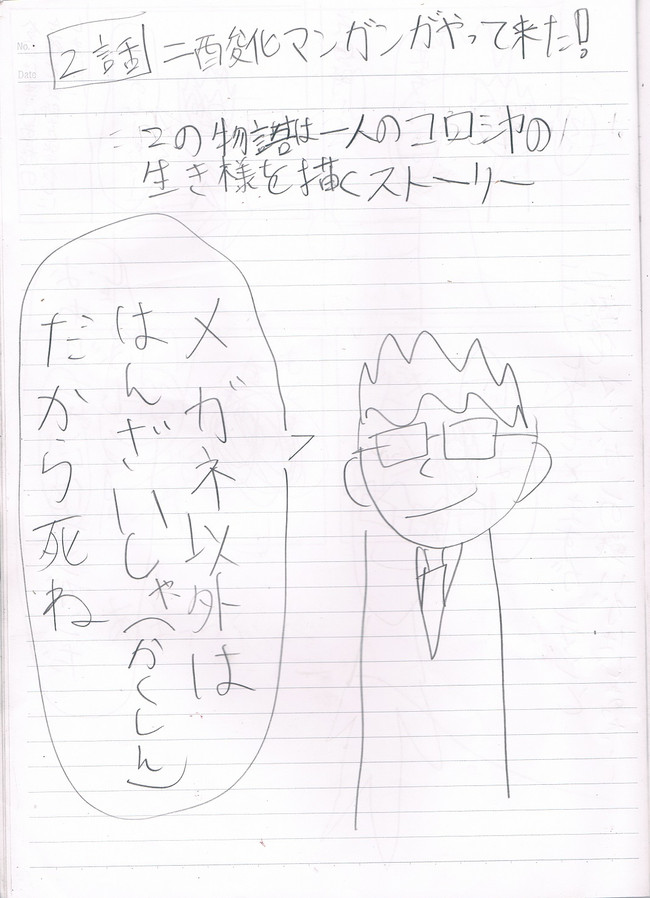 No.
Date
2話 二酸化マンガンがやって来た!
この物語は一人のコロシヤの
生き様を描くストーリー
メガネ以外は
はんざいしゃ(かくしん)
だから死ね